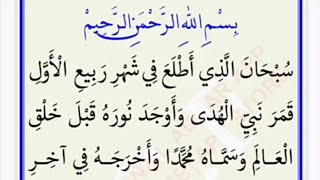 بِسْمِ اللهِ الرَّحْمٰنِ الرَّحِيْمِ
سُبْحَانَ الَّذِي أَطْلَعَ فِي شَهْرِ رَبِيعِ الْأَوَّلِ
قَمَرَ نَبِيِّ الْهُدَى وَأَوْجَدَ نُورَهُ قَبْلَ خَلْقِ
الْعَالَمِ وَسَمَّاهُ مُحَمَّدًا وَأَخْرَجَهُ فِي آخِرِ